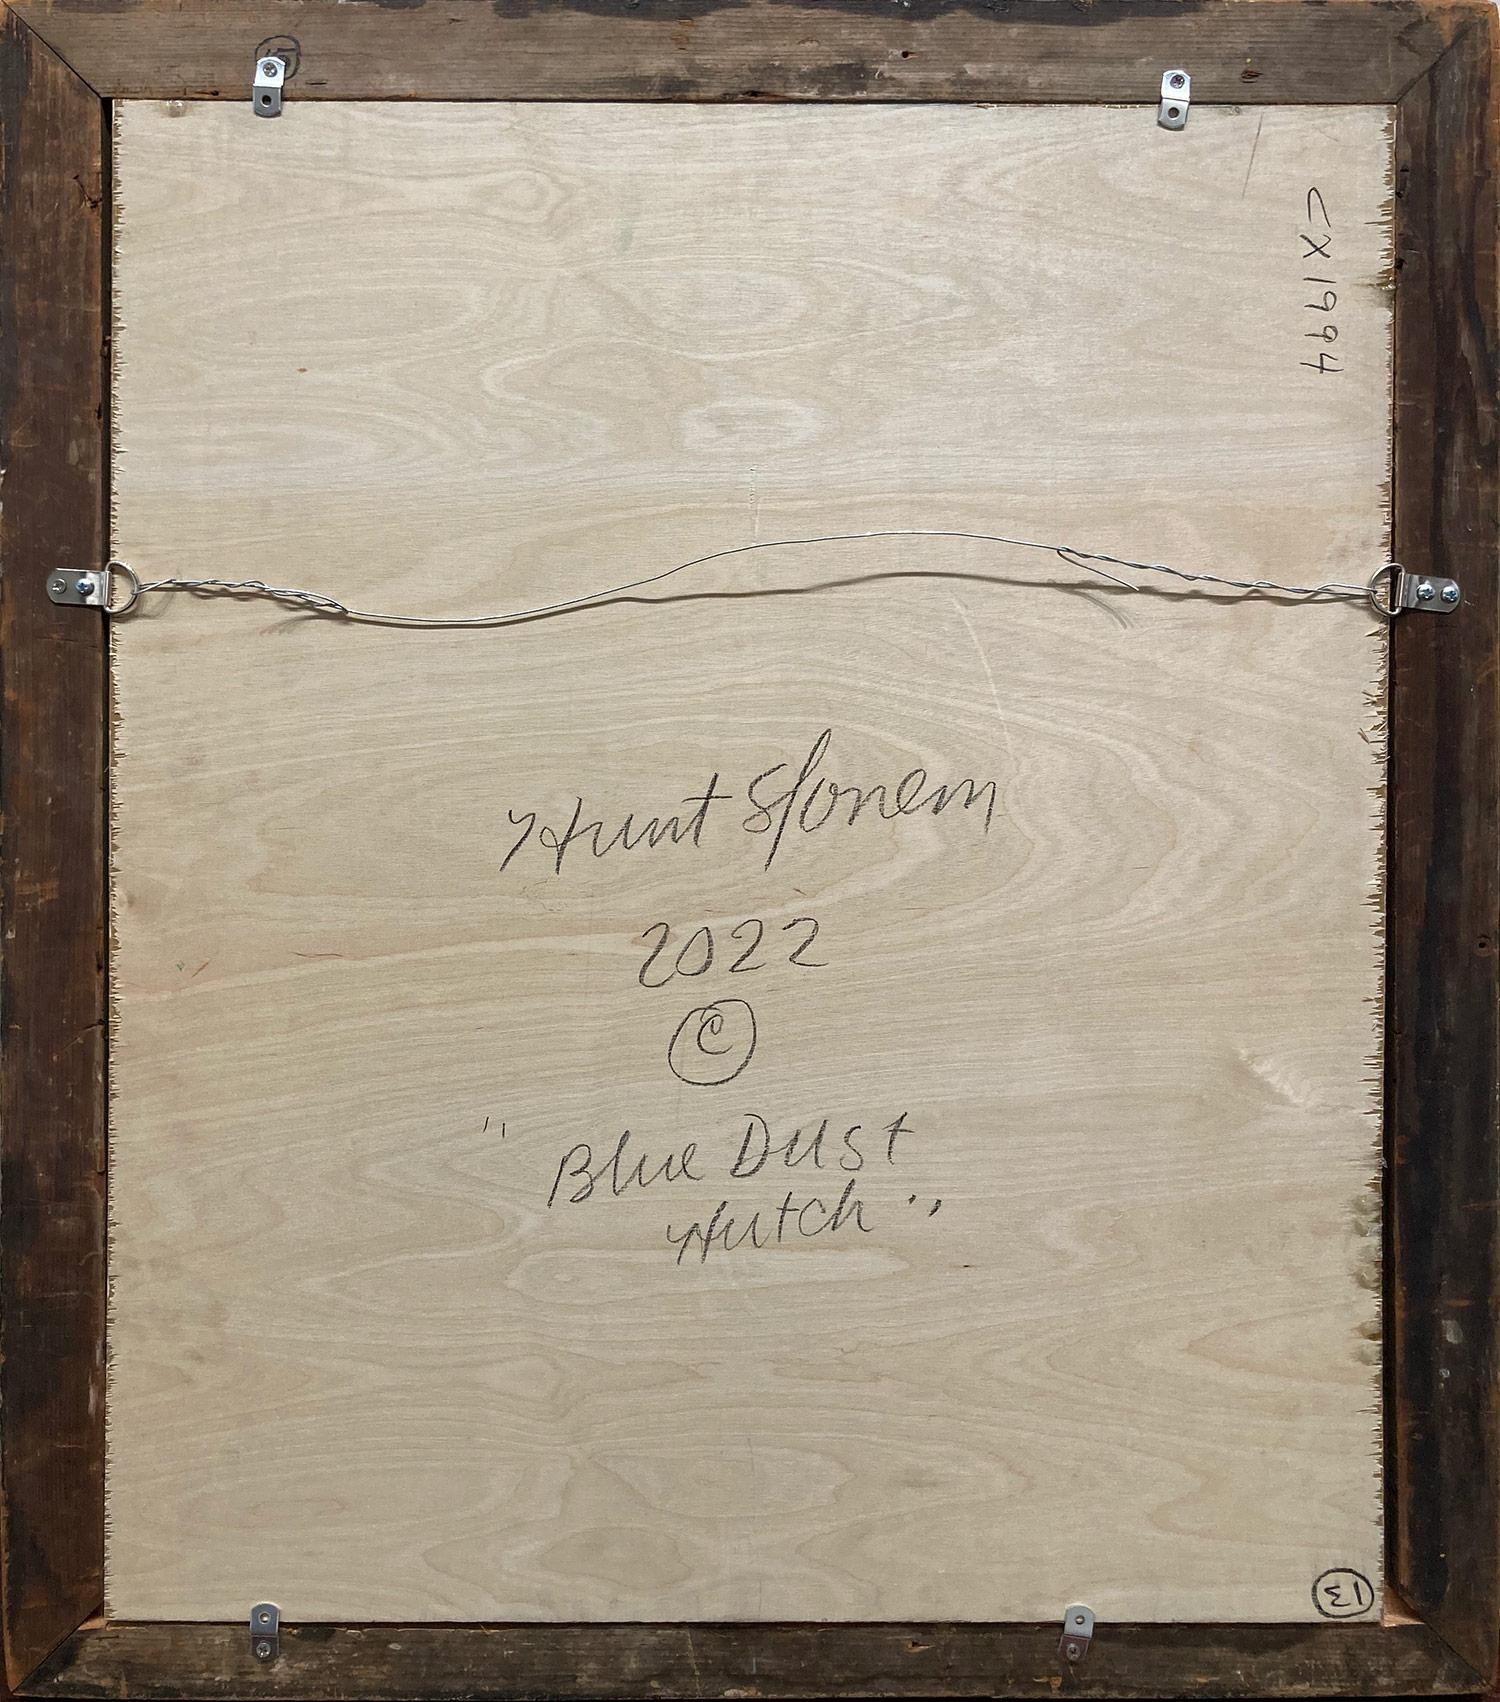 CX1994
Hunt Slonem
2022
©
"Blue Dust
Hutch"
13